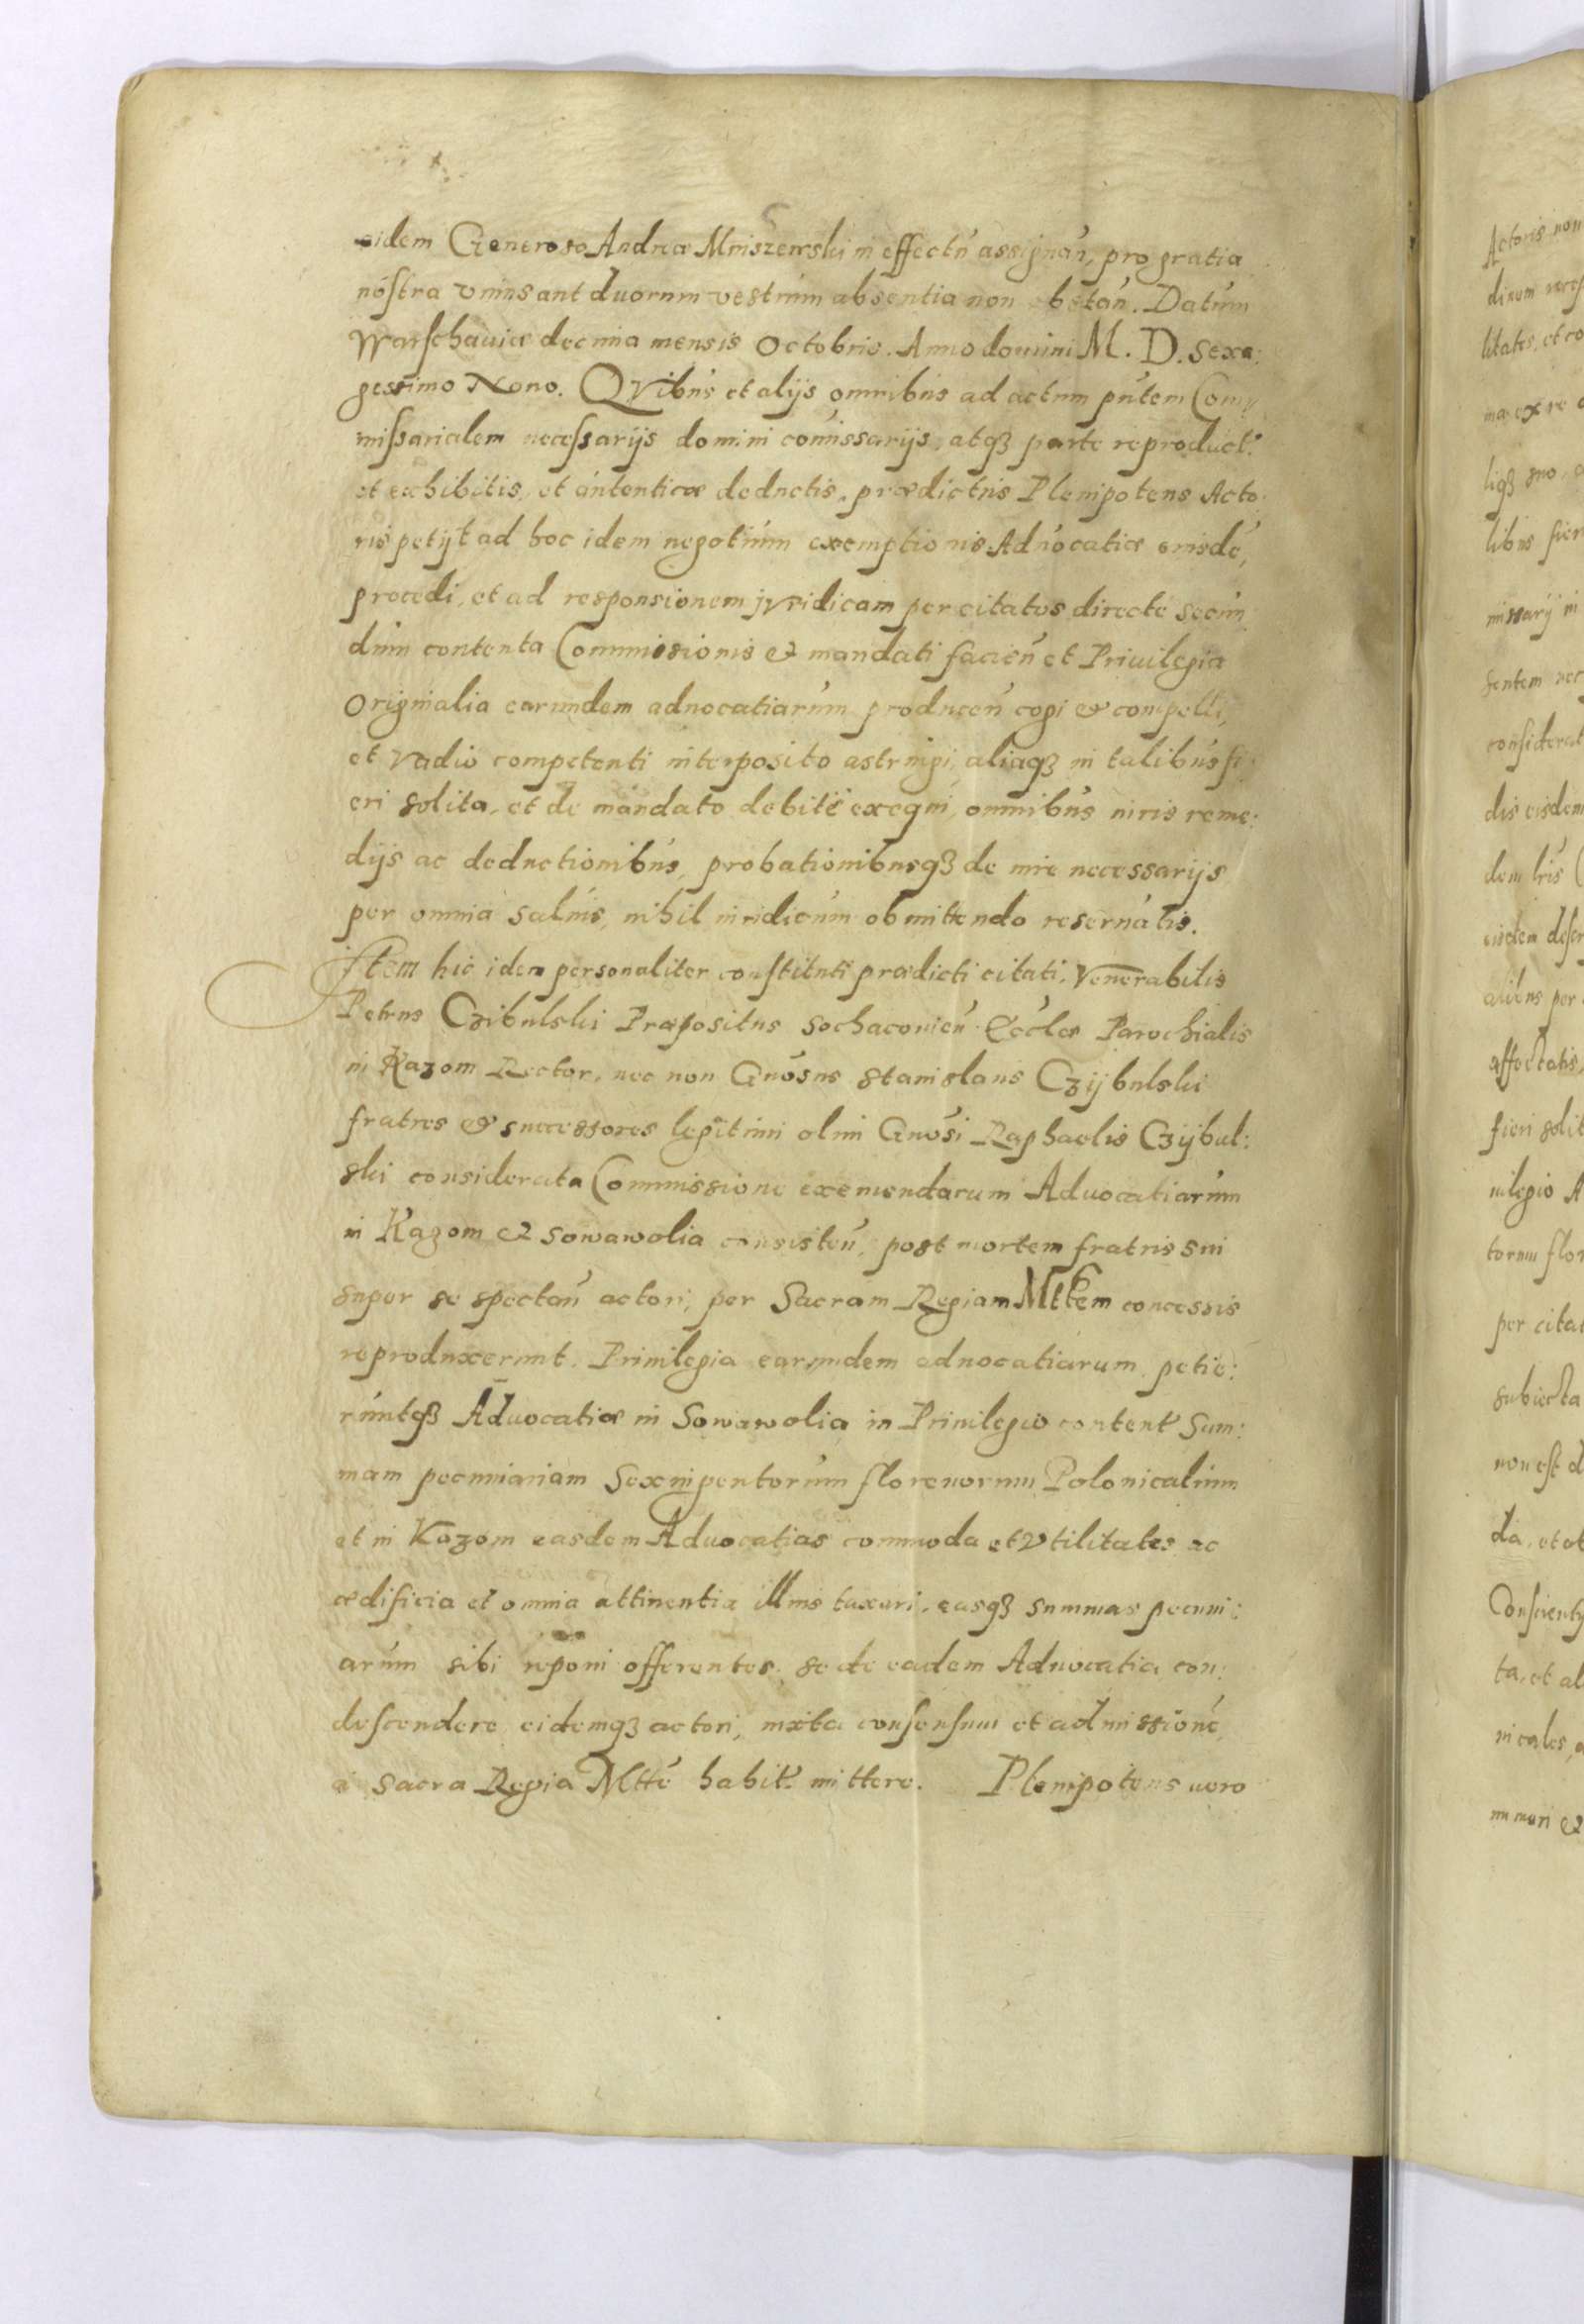 eidem Generoso Andreæ Mniszewski in effectū assignān, pro gratia
nostra vnius aut duorum vestrum absentia non obstan̄. Datum
Warschauiæ decima mensis Octobris. Anno domini M. D. Sexa:
gessimo Nono. Qvibus et alijs omnibus ad actum pn̄tem Com:
missarialem necessarijs domini com̄issarijs, atqȝ parte reproduct:
et exhibitis, et autenticæ deductis, prædictus Plenipotens Acto:
ris petijt ad hoc idem negotium exemptionis Aduocatiæ eiusdē,
procedi, et ad responsionem jvridicam per citatos directe secun
dum contenta Commissionis & mandati facien̄ et Priuilegia
Originalia earundem aduocatiarum producen̄ cogi & compelli,
et vadio competenti interposito astringi, aliaqȝ in talibus fi:
eri solita, et de mandato debite exequi, omnibus iuris reme:
dijs ac deductionibus, probationibusqȝ de iure necessarijs
per omnia saluis, nihil iuridicum obmittendo reseruatis.
Item hic idem personaliter constituti prædicti citati, Venerabilis
Petrus Czibulski Præpositus Sochacouien̄ Eccl̄æ Parochialis
in Kazom Rector, nec non Gn̄osus Stanislaus Czijbulski
fratres & successores legitimi olim Gn̄osi Raphaelis Czijbul:
ski considerata Commissione eximendarum Aduocatiarum
in Kazom & Sowawolia consisten̄, post mortem fratris sui
super se spectan̄ actori, per Sacram Regiam Mttem concessis
reproduxerunt Priuilegia earundem aduocatiarum, petie:
runtqȝ Aduocatiæ in Sowawolia in Priuilegio content Sum:
mam pecuniariam Sexingentorum florenorum Polonicalium
et in Kazom easdem Aduocatias commoda et vtilitates ac
ædificia et omnia attinentia illius taxari, easqȝ summas pecuni:
arum sibi reponi offerentes, se de eadem Aduocatia con:
descendere eidemqȝ actori, iuxta consensum et admissionē,
a Sacra Regia Mttē habit mittere. Plenipotens uero